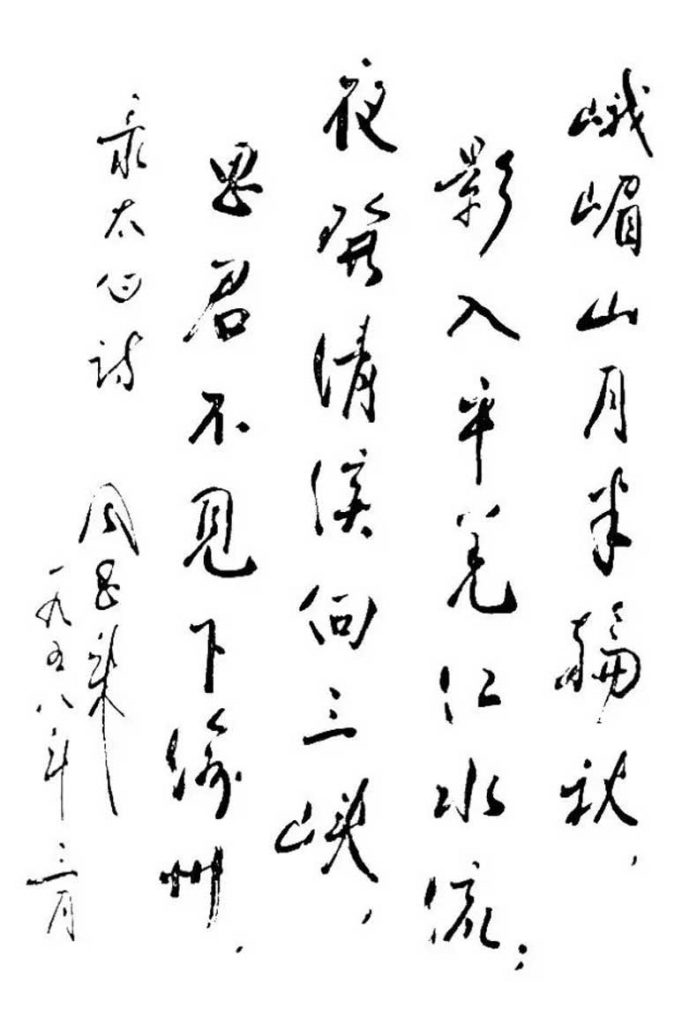 峨嵋山月半轮秋，
影入平羌江水流；
夜发清溪向三峡，
思君不见下渝州．
录太白诗
周昌棨
一九五八年三月